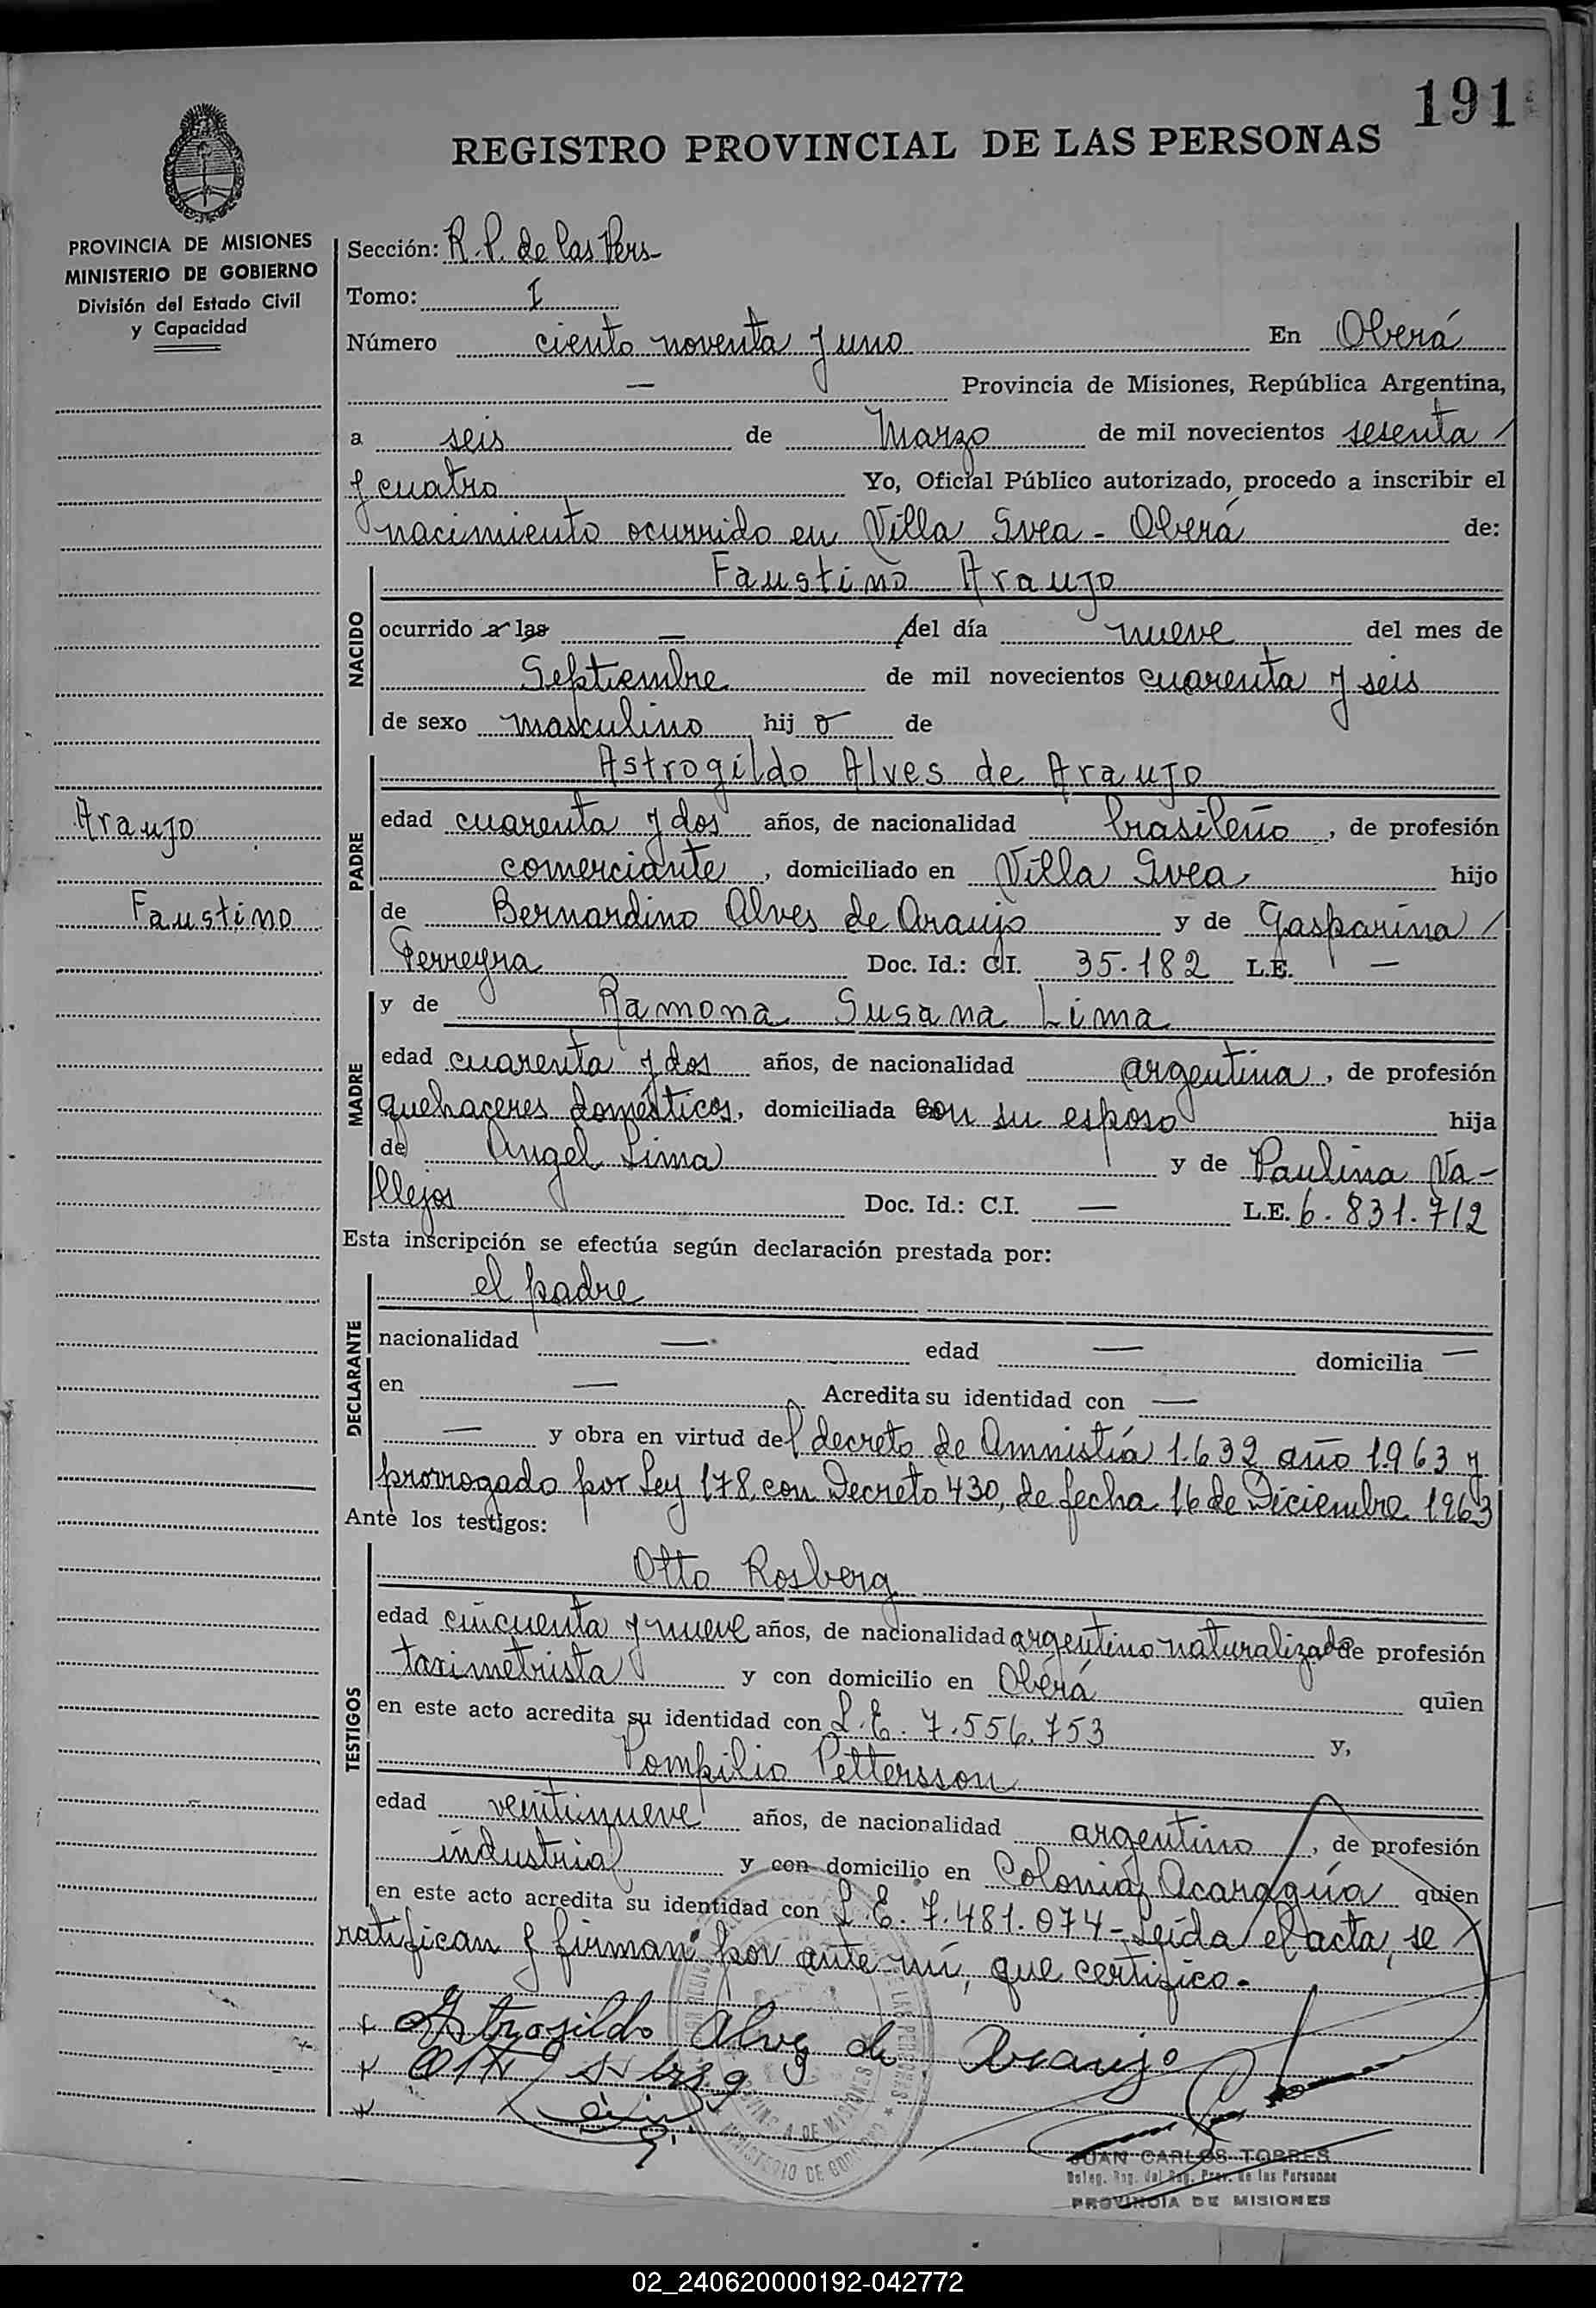 191
REGISTRO PROVINCIAL DE LAS PERSONAS
PROVINCIA DE MISIONES
MINISTERIO DE GOBIERNO
División del Estado Civil
y Capacidad
Sección: R.P. de las Pers-
Tomo: I
Número ciento noventa y uno En Oberá
— Provincia de Misiones, República Argentina,
a seis de Marzo de mil novecientos sesenta /
y cuatro Yo, Oficial Público autorizado, procedo a inscribir el
nacimiento ocurrido en Villa Svea - Oberá de:
NACIDO
Faustino Araujo
ocurrido a las — del día nueve del mes de
Septiembre de mil novecientos cuarenta y seis
de sexo masculino hijo de
PADRE
Astrogildo Alves de Araujo
Araujo
Faustino
edad cuarenta y dos años, de nacionalidad brasileño, de profesión
comerciante, domiciliado en Villa Svea hijo
de Bernardino Alves de Araujo y de Gasparina /
Ferreyra Doc. Id.: C.I. 35.182 L.E. —
MADRE
y de Ramona Susana Lima
edad cuarenta y dos años, de nacionalidad argentina, de profesión
quehaceres domésticos, domiciliada con su esposo hija
de Angel Lima y de Paulina Va-
llejos Doc. Id.: C.I. — L.E. 6.831.712
Esta inscripción se efectúa según declaración prestada por:
DECLARANTE
el padre
nacionalidad — edad — domicilia —
en — Acredita su identidad con —
— y obra en virtud del decreto de Amnistía 1.632 año 1963 y
prorrogado por Ley 178, con Decreto 430, de fecha 16 de Diciembre 1963
Ante los testigos:
TESTIGOS
Otto Rosberg
edad cincuenta y nueve años, de nacionalidad argentino naturalizado de profesión
taximetrista y con domicilio en Oberá quien
en este acto acredita su identidad con L.E. 7.556.753 y,
Pompilio Pettersson
edad veintinueve años, de nacionalidad argentino, de profesión
industrial y con domicilio en Colonia Acaragúa quien
en este acto acredita su identidad con L.E. 7.481.074 - Leída el acta, se
ratifican y firman por ante mí, que certifico.-
Astrogildo Alves de Araujo
JUAN CARLOS TORRES
Deleg. Reg. del Reg. Prov. de las Personas
PROVINCIA DE MISIONES
02_240620000192-042772